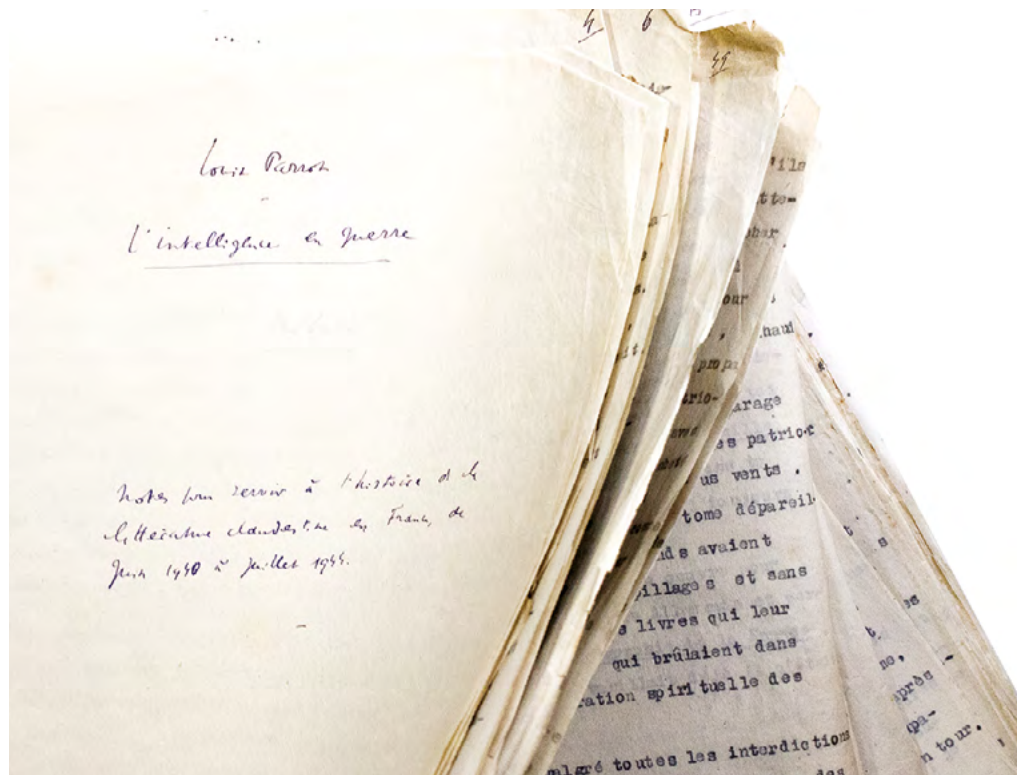 Louis Parrot
L'intelligence en guerre
Notes pour servir à l'histoire de la
littérature clandestine en France, de
Juin 1940 à Juillet 1944.
4
6
45
'ils
tte-
cher
our
, haut
pmpa
trio-
arage
avec
es patrio
us vents .
tome dépareil
nds avaient
pillages et sans
s livres qui leur
qui brûlaient dans
ration spirituelle des
malgré toutes les interdictions
des
t
s
es
t,
ne,
après -
pa-
n tour.